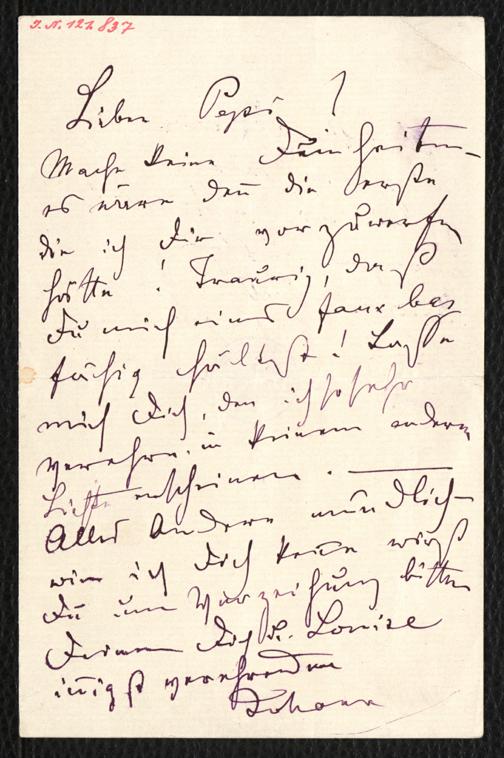 I. N. 121.837
Lieber Pepi !
Mache keine Feinheiten –
es wäre den̄ die erste
die ich Dir vorzuwerfen
hätte ! Traurig, daß
Du mich eines faux bas
fähig hältst ! Lasse
mich Dich, den ich so sehr
verehre in keinem andern
Lichte erscheinen . —
Alles Andere mündlich –
wie ich Dich kenne wirst
Du um Verzeihung bitten
Deinen Dich u. Louise
inigst verehrenden
Johann